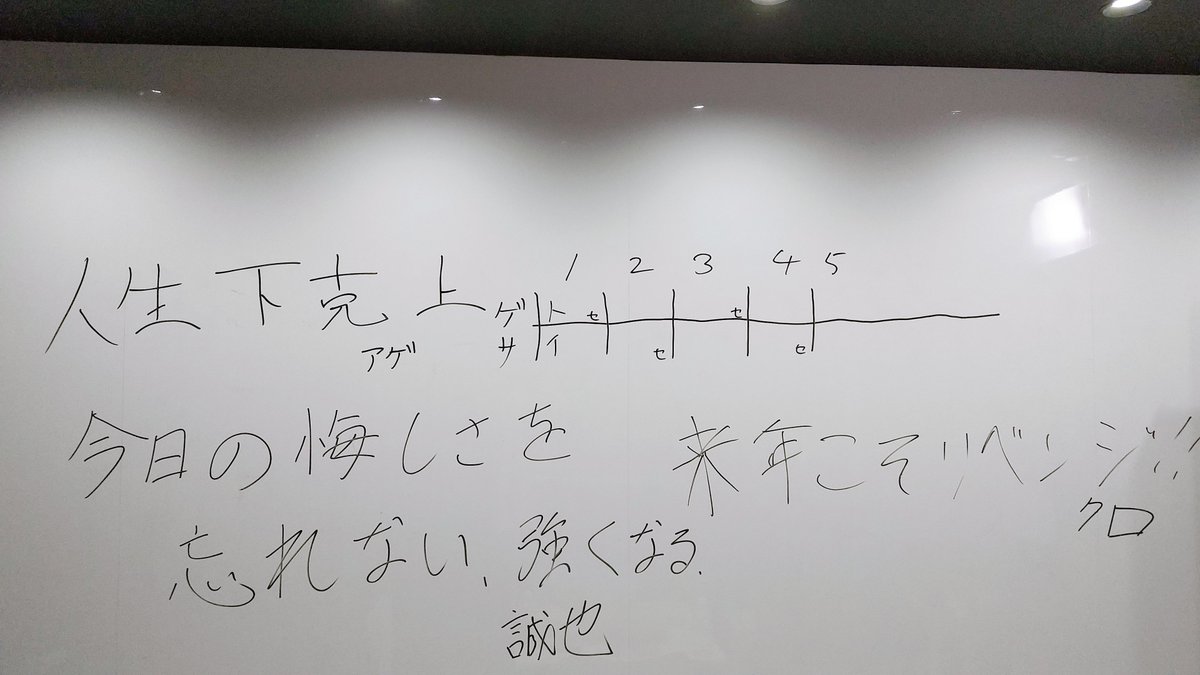 人生下克上
アゲ
1 2 3 4 5
ゲ ト セ セ
サ イ セ セ
今日の悔しさを
忘れない、強くなる.
誠也
来年こそリベンジ!!
クロ